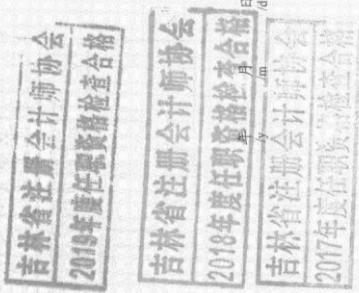 吉林省注册会计师协会
2019年度任职资格检查合格
吉林省注册会计师协会
2018年度任职资格检查合格
年 月 日
/y /m /d
吉林省注册会计师协会
2017年度任职资格检查合格